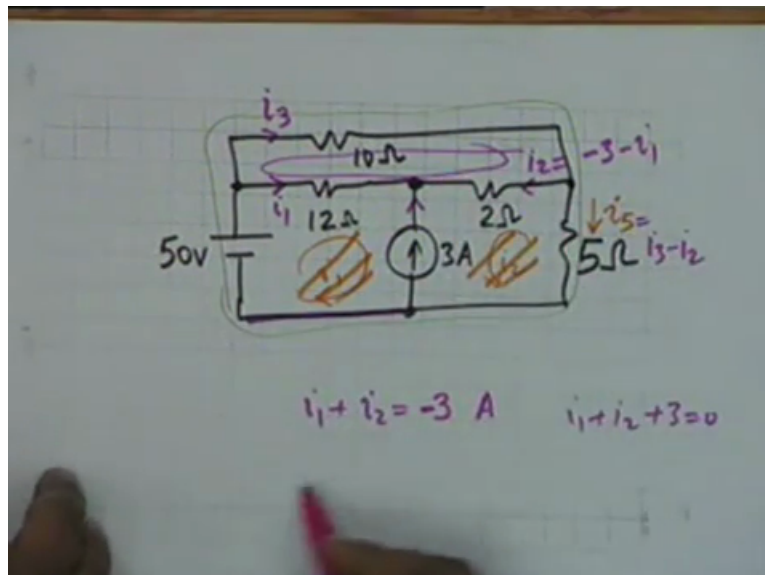 i₃
10Ω
i₂= -3-i₁
i₁
12Ω
2Ω
i₅=
50v
3A
5Ω
i₃-i₂
i₁+i₂=-3 A
i₁+i₂+3=0